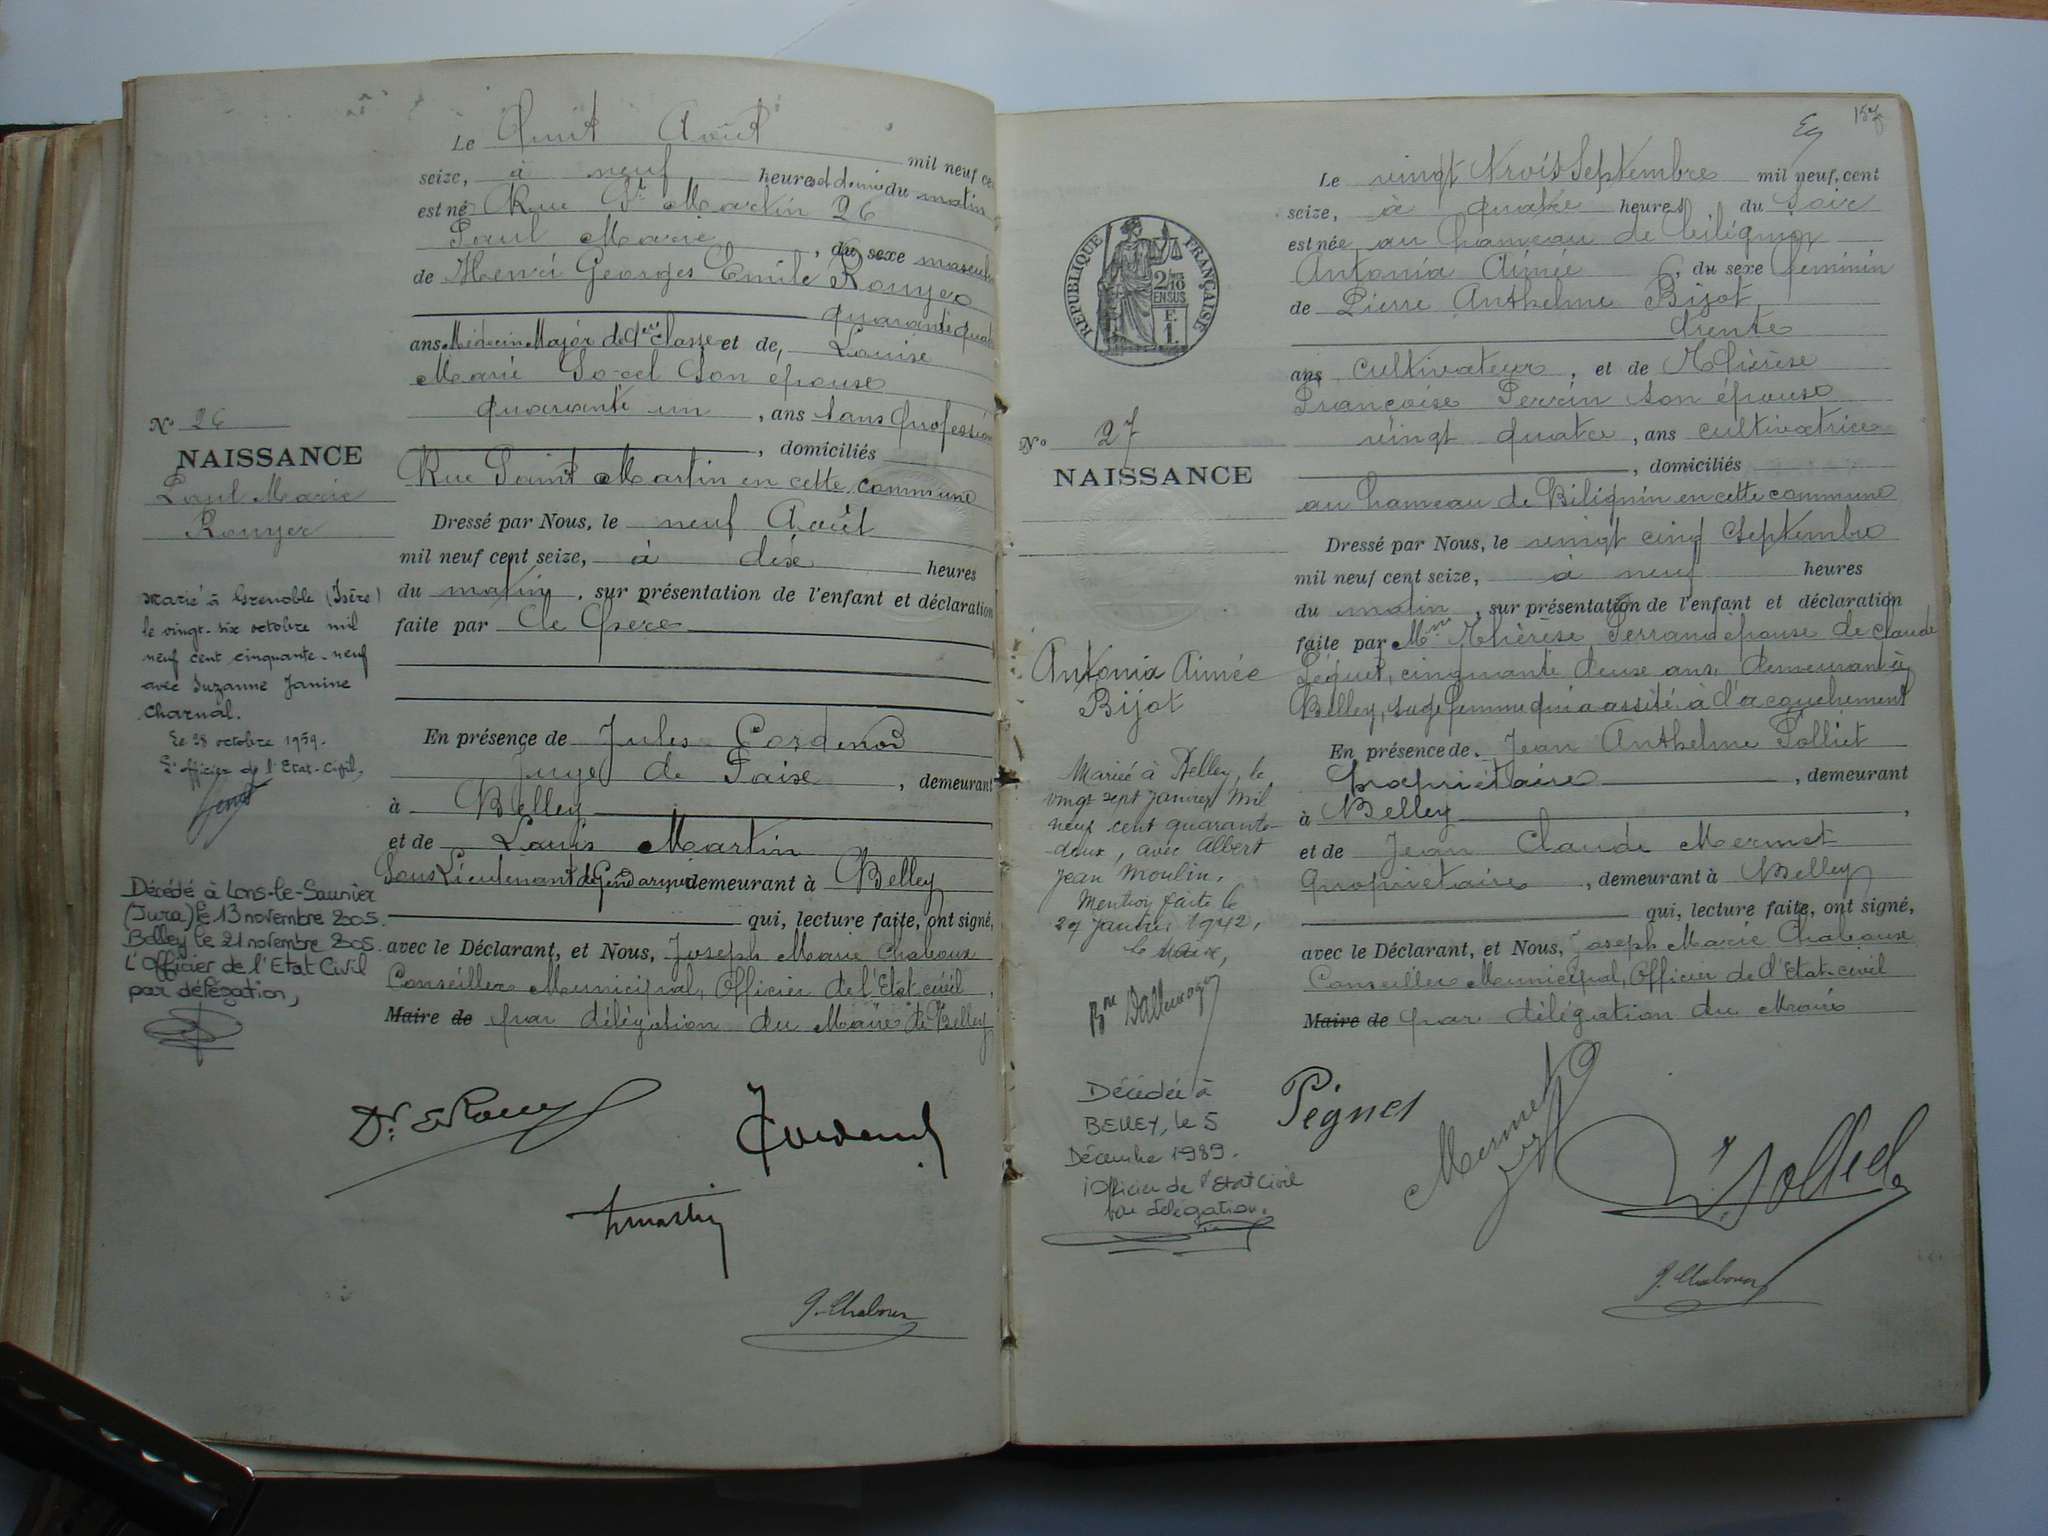 Le huit Août mil neuf cen
seize, à neuf heures et demie du matin
est né Rue St Martin 26
Paul Marie, du sexe masculin
de Henri Georges Emile Rouyer
quarante quat
ans Médecin Major de 1ère classe et de, Louise
Marie son épouse
quarante un, ans sans profession
, domiciliés
Rue Saint Martin en cette commune
Dressé par Nous, le neuf Août
mil neuf cent seize, à dix heures
du matin, sur présentation de l'enfant et déclaration
faite par le père
En présence de Jules Cordenod
Juge de Paix, demeurant
à Belley
et de Louis Martin
Sous Lieutenant de Gendarmerie demeurant à Belley
qui, lecture faite, ont signé,
avec le Déclarant, et Nous, Joseph Marie Chaboux
Conseiller Municipal, Officier de l'Etat civil
Maire de par délégation du Maire de Belley
No 26
NAISSANCE
Paul Marie
Rouyer
Marié à Grenoble (Isère)
le vingt-six octobre mil
neuf cent cinquante-neuf
avec Suzanne Janine
Charnal.
Le 28 octobre 1959.
L'officier de l'Etat-Civil,
Décédé à Lons-le-Saunier
(Jura) le 13 novembre 2005.
Belley le 21 novembre 2005.
L'Officier de l'Etat Civil
par délégation,
Dr E Rouyer
Cordenod
Lmartin
J. Chaboux
157
Le vingt trois Septembre mil neuf cent
seize, à quatre heures du soir
est née au hameau de Bilignin
Antonia Aimée, du sexe féminin
de Pierre Anthelme Bijot
trente
ans cultivateur, et de Thérèse
Françoise Perrin son épouse
vingt quatre, ans cultivatrice
, domiciliés
au hameau de Bilignin en cette commune
Dressé par Nous, le vingt cinq Septembre
mil neuf cent seize, à neuf heures
du matin, sur présentation de l'enfant et déclaration
faite par Mme Thérèse Ferrand épouse de Claude
Péquet, cinquante deuse ans, demeurant à
Belley, sage femme qui a assité à l'acouchement
En présence de. Jean Anthelme Polliet
propriétaire, demeurant
à Belley,
et de Jean Claude Mermet
propriétaire, demeurant à Belley
qui, lecture faite, ont signé,
avec le Déclarant, et Nous, Joseph Marie Chaboux
Conseiller Municipal, Officier de l'Etat-civil
Maire de par délégation du Maire
REPUBLIQUE FRANÇAISE
2/10
EN SUS
F.
1.
No 27
NAISSANCE
Antonia Aimée
Bijot
Mariée à Belley, le
vingt sept janvier mil
neuf cent quarante-
deux, avec Albert
Jean Moulin.
Mention faite le
29 janvier 1942,
le Maire,
Décédée à
BELLEY, le 5
Décembre 1989.
l'Officier de l'Etat Civil
par délégation.
Mermet
Polliet
J. Chaboux